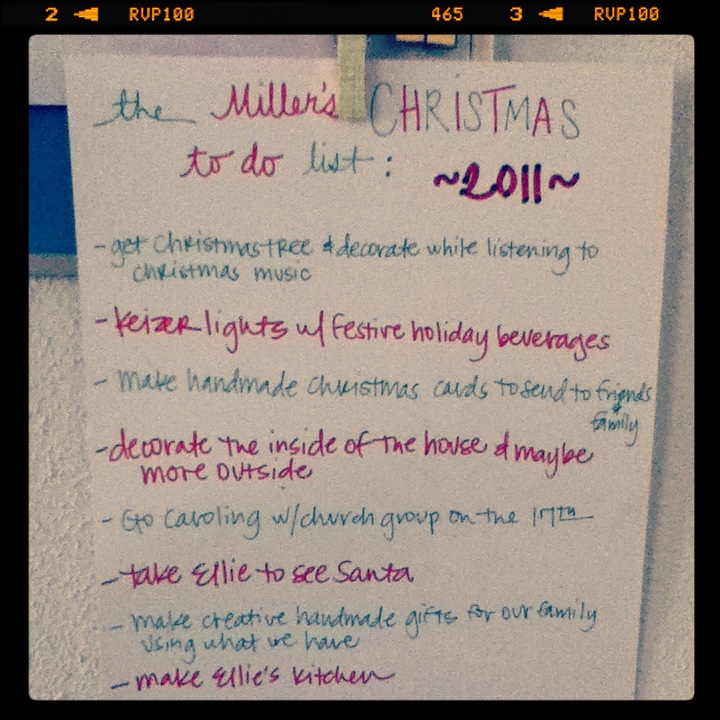 2 RVP100 465 3 RVP100
the Miller's CHRISTMAS
to do list:
~2011~
- get christmas tree & decorate while listening to
christmas music
- Keizer lights w/ festive holiday beverages
- make handmade christmas cards to send to friends
&
family
- decorate the inside of the house & maybe
more outside
- Go caroling w/church group on the 17th
- take Ellie to see Santa
- make creative handmade gifts for our family
using what we have
- make Ellie's kitchen